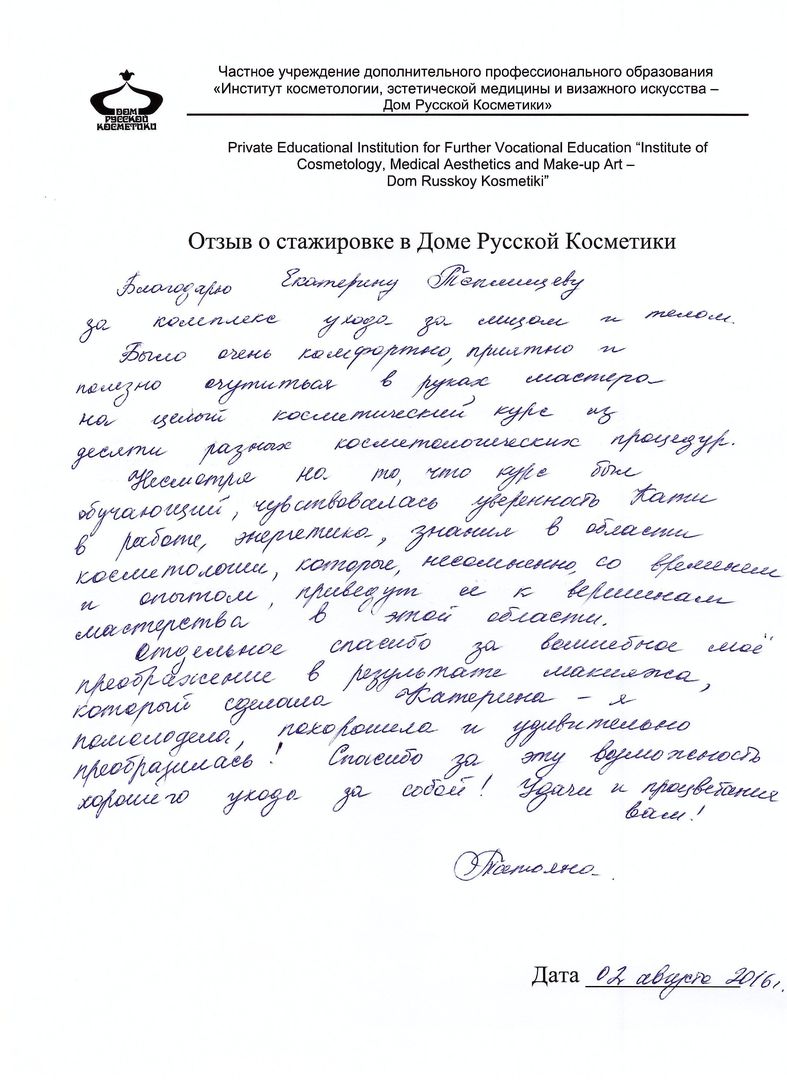 ДОМ
РУССКОЙ
КОСМЕТИКИ
Частное учреждение дополнительного профессионального образования
«Институт косметологии, эстетической медицины и визажного искусства –
Дом Русской Косметики»
Private Educational Institution for Further Vocational Education “Institute of
Cosmetology, Medical Aesthetics and Make-up Art –
Dom Russkoy Kosmetiki”
Отзыв о стажировке в Доме Русской Косметики
Благодарю Екатерину
за комплекс ухода за лицом и телом.
Было очень комфортно, приятно и
полезно очутиться в руках мастера
на целый косметический курс из
десяти разных косметологических процедур.
Несмотря на то, что курс был
обучающий, чувствовалась уверенность Кати
в работе, энергетика, знания в области
косметологии, которые, несомненно, со временем
и опытом, приведут её к вершинам
мастерства в этой области.
Отдельное спасибо за волшебное моё
преображение в результате макияжа,
который сделала Катерина – я
помолодела, похорошела и удивительно
преобразилась! Спасибо за эту возможность
хорошего ухода за собой! Удачи и процветания
вам!
Татьяна
Дата 02 августа 2016г.